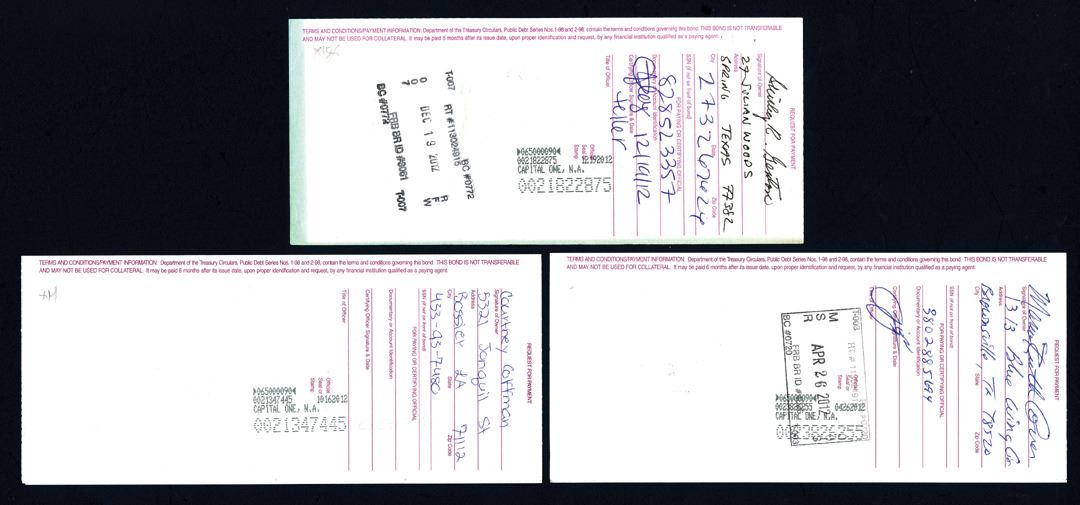 TERMS AND CONDITIONS/PAYMENT INFORMATION: Department of the Treasury Circulars, Public Debt Series Nos. 1-98 and 2-98, contain the terms and conditions governing this bond. THIS BOND IS NOT TRANSFERABLE
AND MAY NOT BE USED FOR COLLATERAL. It may be paid 6 months after its issue date, upon proper identification and request, by any financial institution qualified as a paying agent.
REQUEST FOR PAYMENT
Signature of Owner
27 JULIAN WOODS
Address
SPRING TEXAS 77382
City State Zip Code
SSN (if not on front of bond)
FOR PAYING OR CERTIFYING OFFICIAL
828523357
Documentary or Account Identification
12/19/12
Certifying Officer Signature & Date
teller
Title of Officer
Official Seal or Stamp
▶065000090◀
0021822875 12192012
CAPITAL ONE, N.A.
0021822875
BC #0772
T-007 RT #113024915
DEC 19 2012
R F W
FRB BR ID #8081 T-007
BC #0772
TERMS AND CONDITIONS/PAYMENT INFORMATION: Department of the Treasury Circulars, Public Debt Series Nos. 1-98 and 2-98, contain the terms and conditions governing this bond. THIS BOND IS NOT TRANSFERABLE
AND MAY NOT BE USED FOR COLLATERAL. It may be paid 6 months after its issue date, upon proper identification and request, by any financial institution qualified as a paying agent.
REQUEST FOR PAYMENT
Courtney Coffman
Signature of Owner
5321 Jonquil St
Address
Bossier LA 71112
City State Zip Code
433-93-7480
SSN (if not on front of bond)
FOR PAYING OR CERTIFYING OFFICIAL
Documentary or Account Identification
Certifying Officer Signature & Date
Title of Officer
Official Seal or Stamp
▶065000090◀
0021347445 10162012
CAPITAL ONE, N.A.
0021347445
TERMS AND CONDITIONS/PAYMENT INFORMATION: Department of the Treasury Circulars, Public Debt Series Nos. 1-98 and 2-98, contain the terms and conditions governing this bond. THIS BOND IS NOT TRANSFERABLE
AND MAY NOT BE USED FOR COLLATERAL. It may be paid 6 months after its issue date, upon proper identification and request, by any financial institution qualified as a paying agent.
REQUEST FOR PAYMENT
Signature of Owner
1313 Blue Wing Cir
Address
Brownsville, TX 78520
City State Zip Code
SSN (if not on front of bond)
FOR PAYING OR CERTIFYING OFFICIAL
3802885694
Documentary or Account Identification
Certifying Officer Signature & Date
Official Seal or Stamp
T-003
M S R
APR 26 2012
FRB BR ID
BC #0720
▶065000090◀
04262012
CAPITAL ONE, N.A.